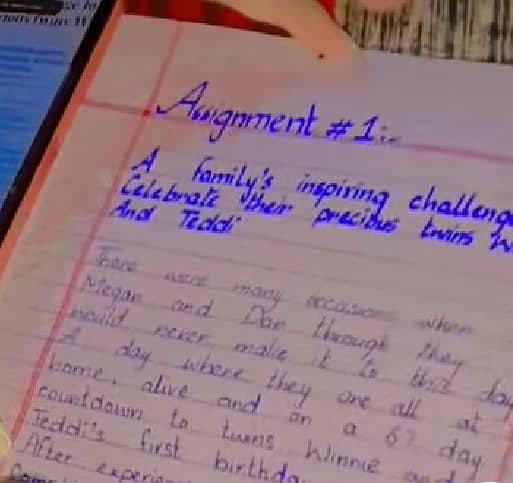 Assignment #1:-
A family's inspiring challeng
Celebrate their precious twins W
And Teddi
There were many occasions when
Megan and Dan through they
would never make it to this day
A day where they are all at
home, alive and on a 67 day
countdown to twins Winnie and
Teddi's first birthda
After experien